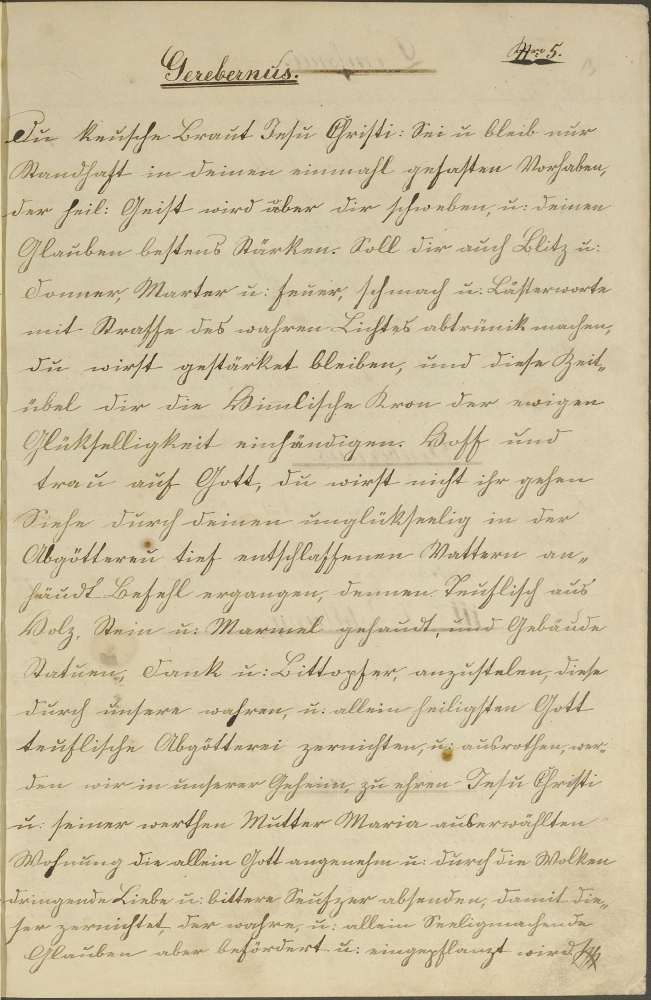 Nro 5.
Gerebernus.
Du keusche Braut Jesu Christi: Sei u bleib nur
Standhaft in deinen einmahl gefasten Vorhaben,
der heil: Geist wird über dir schweben, u: deinen
Glauben bestens Stärken. Soll dir auch Blitz u:
Donner, Marter u: feuer, schmach u: Lästerworte
mit Straffe des wahren Lichtes abtrünik machen,
du wirst gestärket bleiben, und diese Zeit„
übel dir die Himlische Kron der ewigen
Glükselligkeit einhändigen. Hoff und
trau auf Gott, du wirst nicht ihr gehen
Siehe durch deinen unglükseelig in der
Abgötterey tief entschlaffenen Vattern an„
heudt Befehl ergangen, dennen Teuflisch aus
Holz, Stein u: Marmel gehaudt, und Gebäude
Statuen, Dank u: Bittopfer, anzustelen, diese
durch unsere wahren, u: allein heiligsten Gott
teuflische Abgötterei zernichten, u: ausrothen, wer„
den wir in unserer Geheim, zu ehren Jesu Christi
u: seiner werthen Mutter Maria auserwählten
Wohnung die allein Gott angenehm u: durch die Wolken
dringende Liebe u: bittere Seufzer absenden, damit die„
ser zernichtet, der wahre, u: allein Seeligmachende
Glauben aber befördert u: eingepflanzt wird.